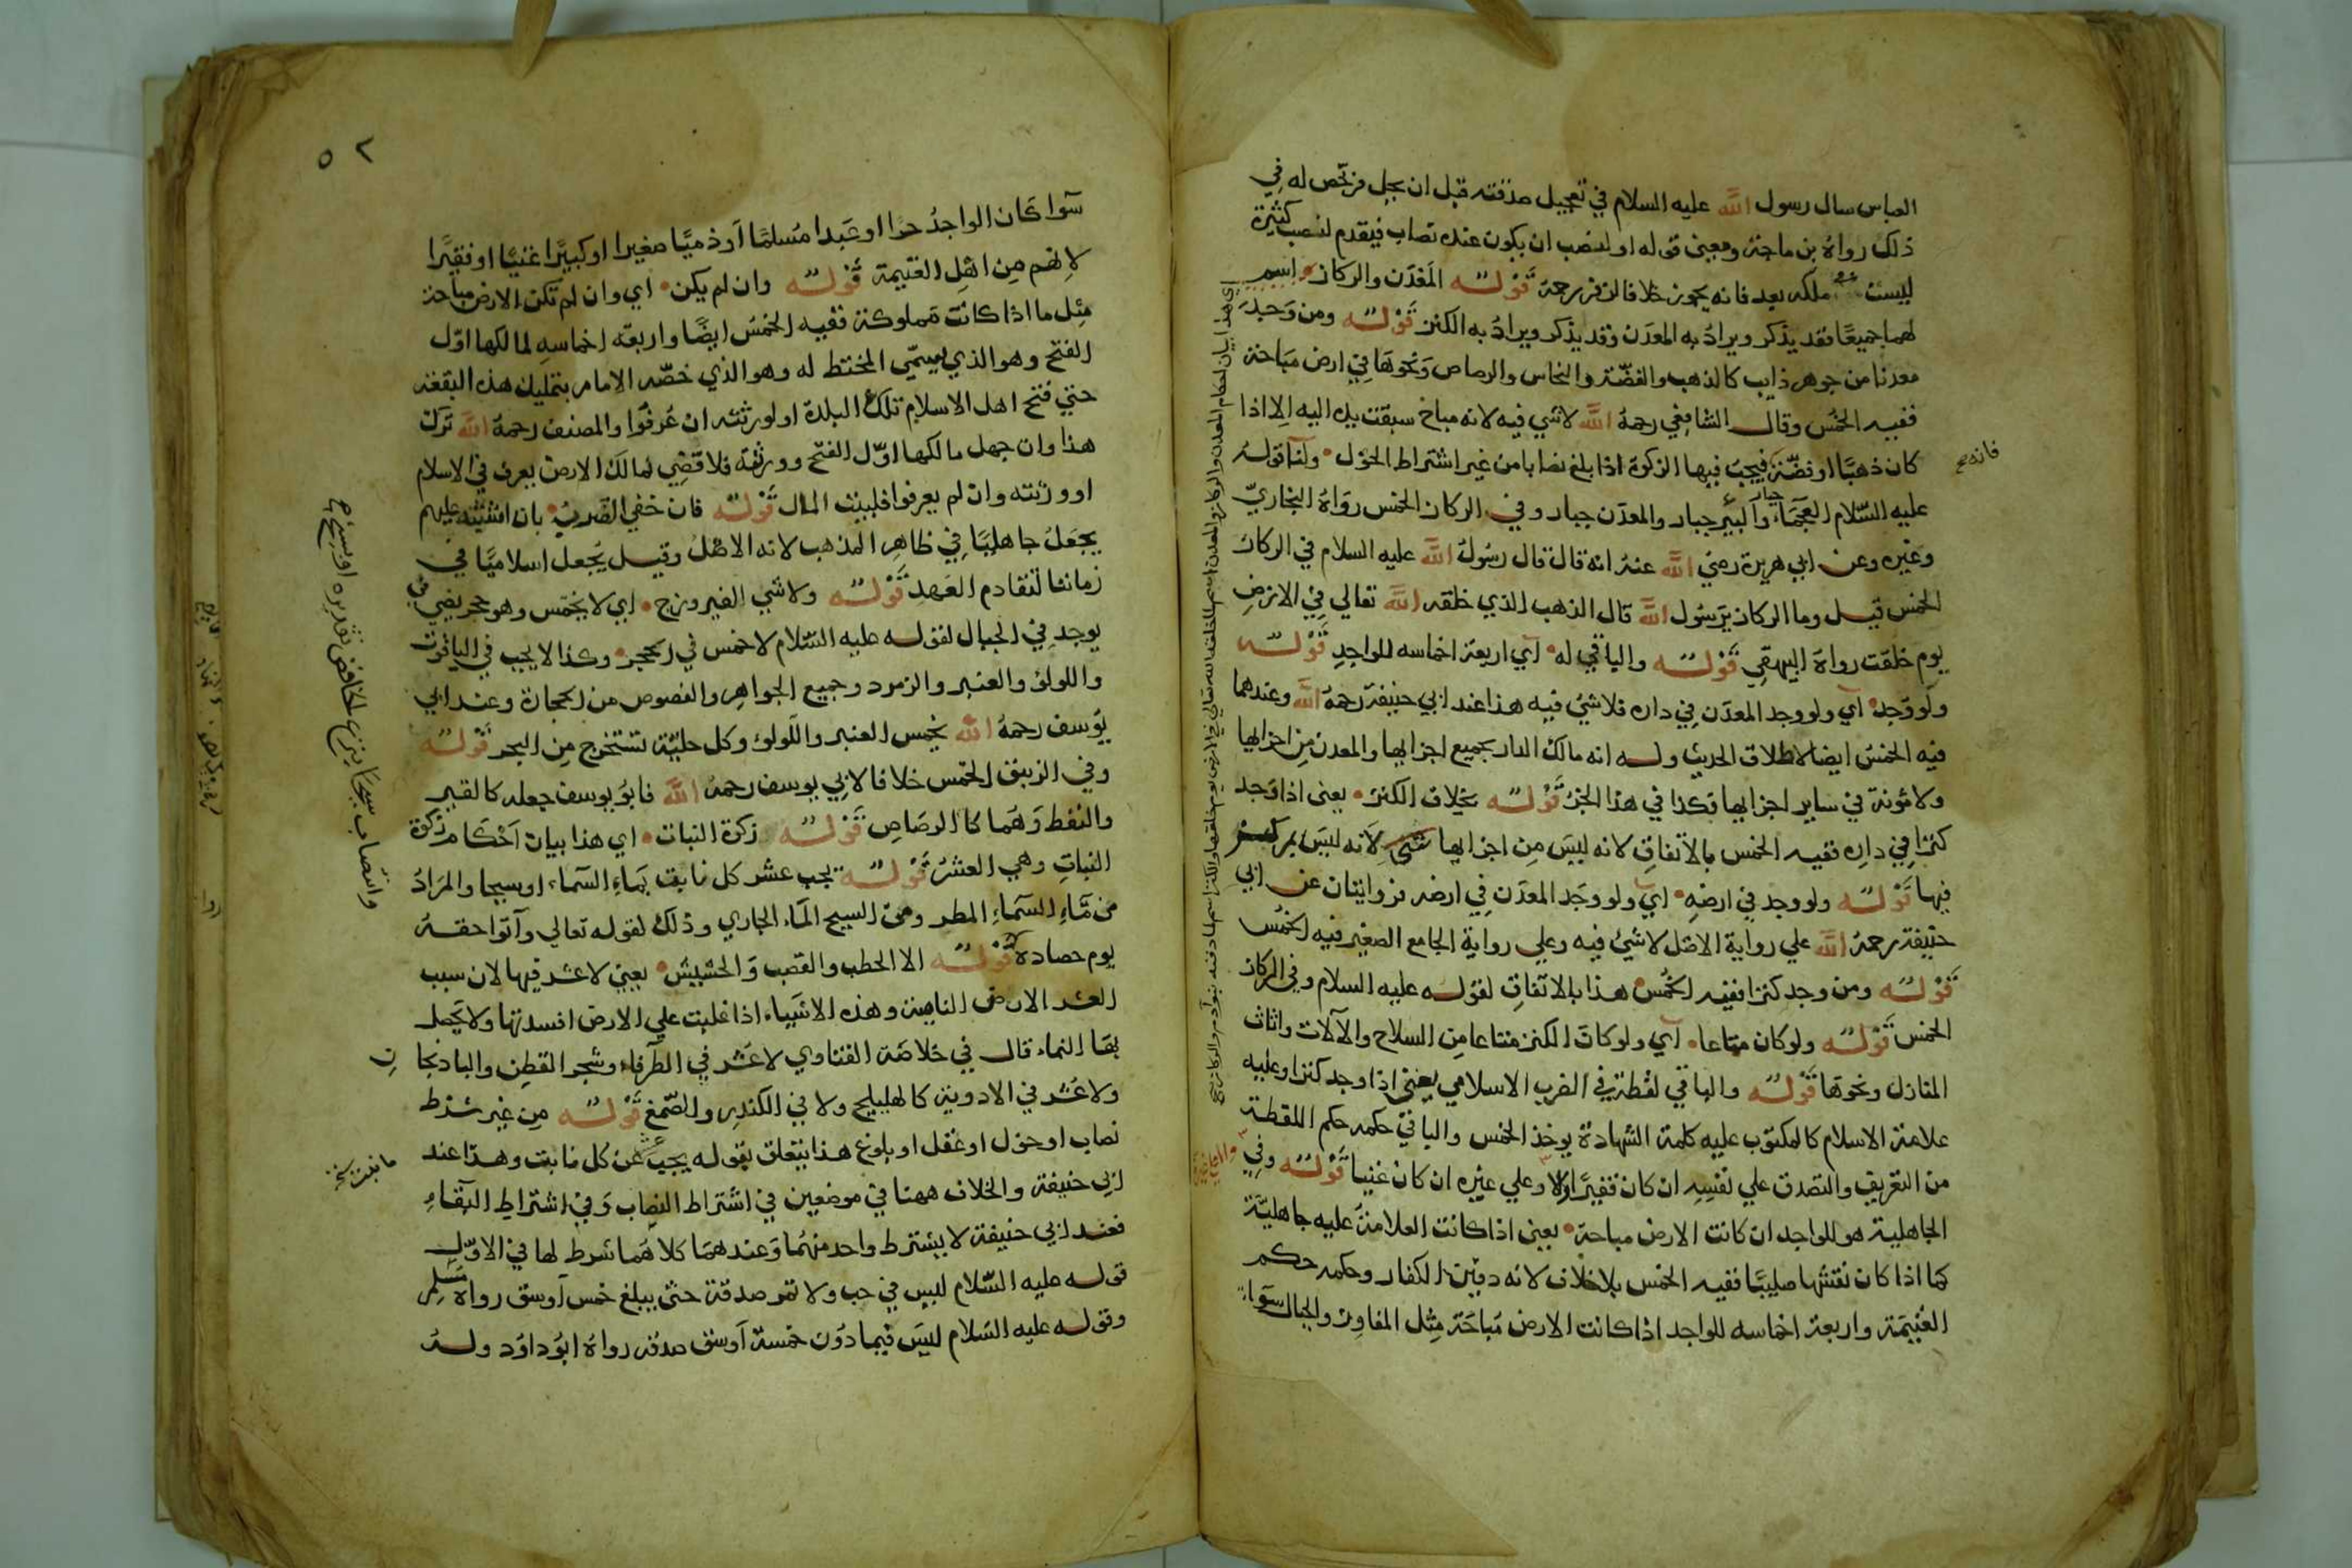 العباس سال رسول الله عليه السلام في تعجيل صدقته قبل ان يحل فرخص له في
ذلك رواه بن ماجة ومعنى قوله او لنصب ان يكون عنده نصاب فيقدم لنصب كثيرة
ليست في ملكه بعد فانه يجوز خلافا لزفر رحمه قوله المعدن والركاز اسم
لهما جميعا فقد يذكر ويراد به المعدن وقد يذكر ويراد به الكنز قوله ومن وجد
معدنا من جوهر ذايب كالذهب والفضة والنحاس والرصاص ونحوها في ارض مباحة
ففيه الخمس وقال الشافعي رحمه الله لا شي فيه لانه مباح سبقت يده اليه الا اذا
كان ذهبا او فضة فيجب فيها الزكوة اذا بلغ نصابا من غير اشتراط الحول ولنا قوله
عليه السلام العجماء جبار والبير جبار والمعدن جبار وفي الركاز الخمس رواه البخاري
وغيره وعن ابي هريرة رضي الله عنه انه قال قال رسول الله عليه السلام في الركاز
الخمس قيل وما الركاز يرسول الله قال الذهب الذي خلقه الله تعالي في الارض
يوم خلقت رواه البيهقي قوله والباقي له اي اربعة اخماسه للواجد قوله
ولو وجد اي ولو وجد المعدن في داره فلا شي فيه هذا عند ابي حنيفة رحمه الله وعندهما
فيه الخمس ايضا لاطلاق الحديث وله انه مالك الدار بجميع اجزايها والمعدن من اجزايها
ولا مئونة في ساير اجزايها فكذا في هذا الجزء قوله بخلاف الكنز يعني اذا وجد
كنزا في داره ففيه الخمس بالاتفاق لانه ليس من اجزايها شي لانه ليس بمركب
فيها قوله ولو وجد في ارضه اي ولو وجد المعدن في ارضه فروايتان عن ابي
حنيفة رحمه الله علي رواية الاصل لا شي فيه وعلي رواية الجامع الصغير فيه الخمس
قوله ومن وجد كنزا ففيه الخمس هذا بالاتفاق لقوله عليه السلام وفي الركاز
الخمس قوله ولو كان متاعا اي ولو كان الكنز متاعا من السلاح والالات واثاث
المنازل ونحوها قوله والباقي لقطة في الضرب الاسلامي يعني اذا وجد كنزا وعليه
علامة الاسلام كالمكتوب عليه كلمة الشهادة يوخذ الخمس والباقي حكمه حكم اللقطة
من التعريف والتصدق علي نفسه ان كان فقيرا او لا وعلي غيره ان كان غنيا قوله وفي
الجاهلية هو للواجد ان كانت الارض مباحة يعني اذا كانت العلامة عليه جاهلية
كما اذا كان نقشها صليبا ففيه الخمس بلا خلاف لانه دفين الكفار وحكمه حكم
الغنيمة واربعة اخماسه للواجد اذا كانت الارض مباحة مثل المفاوز والجبال سواء
فانه صح
٥٢
سوا كان الواجد حرا او عبدا مسلما او ذميا صغيرا او كبيرا غنيا او فقيرا
لانهم من اهل الغنيمة قوله وان لم يكن اي وان لم تكن الارض مباحة
مثل ما اذا كانت مملوكة ففيه الخمس ايضا واربعة اخماسه لمالكها اول
الفتح وهو الذي يسمي المختط له وهو الذي خصه الامام بتمليك هذه البقعة
حتي فتح اهل الاسلام تلك البلدة او لورثته ان عرفوا والمصنف رحمه الله ترك
هذا وان جهل مالكها اول الفتح وورثته فلاقصي لمالك الارض يعرف في الاسلام
او ورثته وان لم يعرفوا فلبيت المال قوله فان خفي الضرب بان اشتبه عليهم
يجعل جاهليا في ظاهر المذهب لانه الاصل وقيل يجعل اسلاميا في
زماننا لتقادم العهد قوله ولا شي الفيروزج اي لا يخمس وهو حجر يضي
يوجد في الجبال لقوله عليه السلام لا خمس في الحجر وكذا لا يجب في الياقوت
واللولؤ والعنبر والزمرد وجميع الجواهر والفصوص من الحجارة وعند ابي
يوسف رحمه الله يخمس العنبر واللولؤ وكل حلية تستخرج من البحر قوله
وفي الزيبق الخمس خلافا لابي يوسف رحمه الله فابو يوسف جعله كالقير
والنفط وهما كالرصاص قوله زكوة النبات اي هذا بيان احكام زكوة
النبات وهي العشر قوله يجب عشر كل نابت بماء السماء او سيحا والمراد
من ماء السماء المطر ومن السيح الماء الجاري وذلك لقوله تعالي وآتوا حقه
يوم حصاده قوله الا الحطب والقصب والحشيش يعني لا عشر فيها لان سبب
العشر الارض النامية وهذه الاشياء اذا غلبت علي الارض افسدتها ولا يحصل
بها النماء قال في خلاصة الفتاوي لا عشر في الطرفاء وشجر القطن والباذنجا
ن
ولا عشر في الادوية كالهليلج ولا في الكندر والصمغ قوله من غير شرط
نصاب او حول او عقل او بلوغ هذا يتعلق بقوله يجب عشر كل نابت وهذا عند
ابي حنيفة والخلاف ههنا في موضعين في اشتراط النصاب وفي اشتراط البقاء
فعند ابي حنيفة لا يشترط واحد منهما وعندهما كلاهما شرط لها في الاول
قوله عليه السلام ليس في حب ولا تمر صدقة حتى يبلغ خمس اوسق رواه مسلم
وقوله عليه السلام ليس فيما دون خمسة اوسق صدقة رواه ابو داود وله
وانتصاب سيحا بنزع الخافض تقديره او بسيح